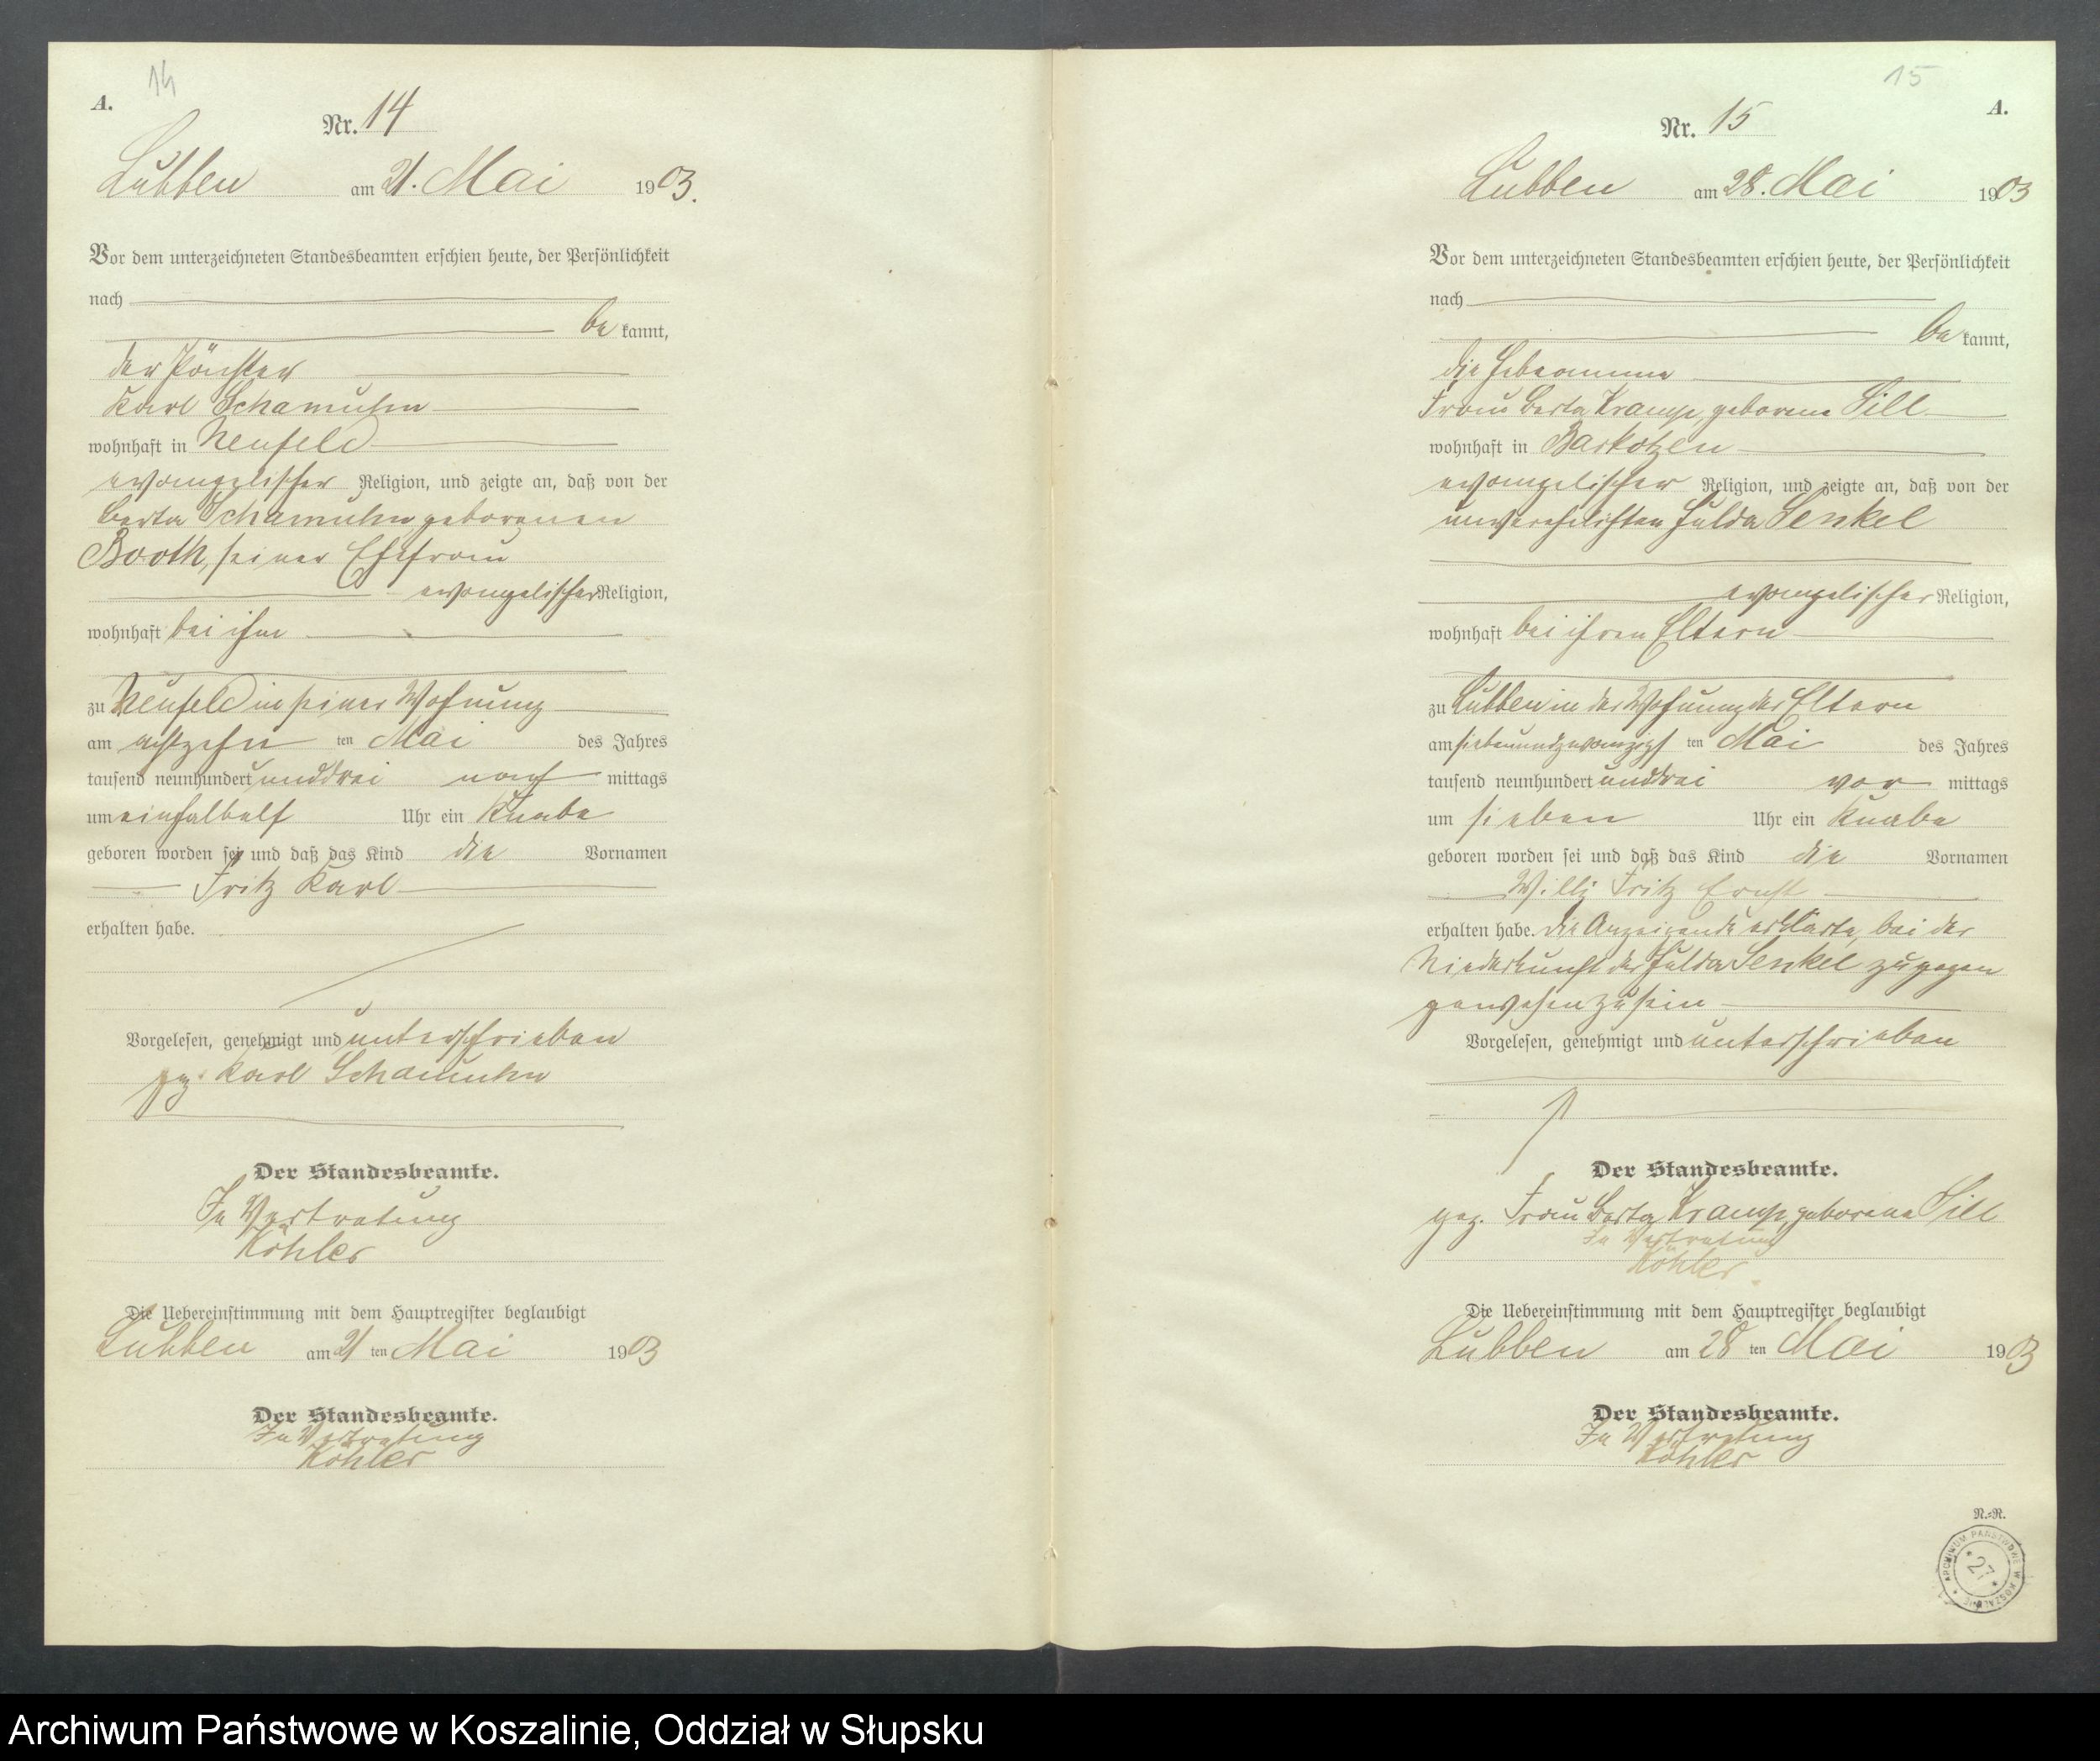 14
A.
Nr. 14
Lubben am 21. Mai 1903.
Vor dem unterzeichneten Standesbeamten erschien heute, der Persönlichkeit
nach
be kannt,
der
Karl Schamuhn
wohnhaft in Neufeld
evangelischer Religion, und zeigte an, daß von der
Berta Schamuhn geborenen
Booth, seiner Ehefrau
evangelischer Religion,
wohnhaft bei ihm
zu Neufeld in seiner Wohnung
am achtzehn ten Mai des Jahres
tausend neunhundert und drei nach mittags
um einhalbelf Uhr ein Knabe
geboren worden sei und daß das Kind die Vornamen
Fritz Karl
erhalten habe.
Vorgelesen, genehmigt und unterschrieben
gez. Karl Schamuhn
Der Standesbeamte.
In Vertretung
Köhler
Die Uebereinstimmung mit dem Hauptregister beglaubigt
Lubben am 21 ten Mai 1903
Der Standesbeamte.
In Vertretung
Köhler
15
A.
Nr. 15
Lubben am 28. Mai 1903
Vor dem unterzeichneten Standesbeamten erschien heute, der Persönlichkeit
nach
be kannt,
die Hebeamme
Frau Berta Kramp, geborene Sill
wohnhaft in Barkotzen
evangelischer Religion, und zeigte an, daß von der
unverehelichten Hulda Senkel
evangelischer Religion,
wohnhaft bei ihren Eltern
zu Lubben in der Wohnung der Eltern
am siebenundzwanzigs ten Mai des Jahres
tausend neunhundert und drei vor mittags
um sieben Uhr ein Knabe
geboren worden sei und daß das Kind die Vornamen
Willi Fritz Ernst
erhalten habe. Die Anzeigende erklärte, bei der
Niederkunft der Hulda Senkel zugegen
gewesen zu sein
Vorgelesen, genehmigt und unterschrieben
Der Standesbeamte.
gez. Frau Berta Kramp, geborene Sill
In Vertretung
Köhler
Die Uebereinstimmung mit dem Hauptregister beglaubigt
Lubben am 28 ten Mai 1903
Der Standesbeamte.
In Vertretung
Köhler
N.=R.
ARCHIWUM PAŃSTWOWE W KOSZALINIE
* 27 *
Archiwum Państwowe w Koszalinie, Oddział w Słupsku